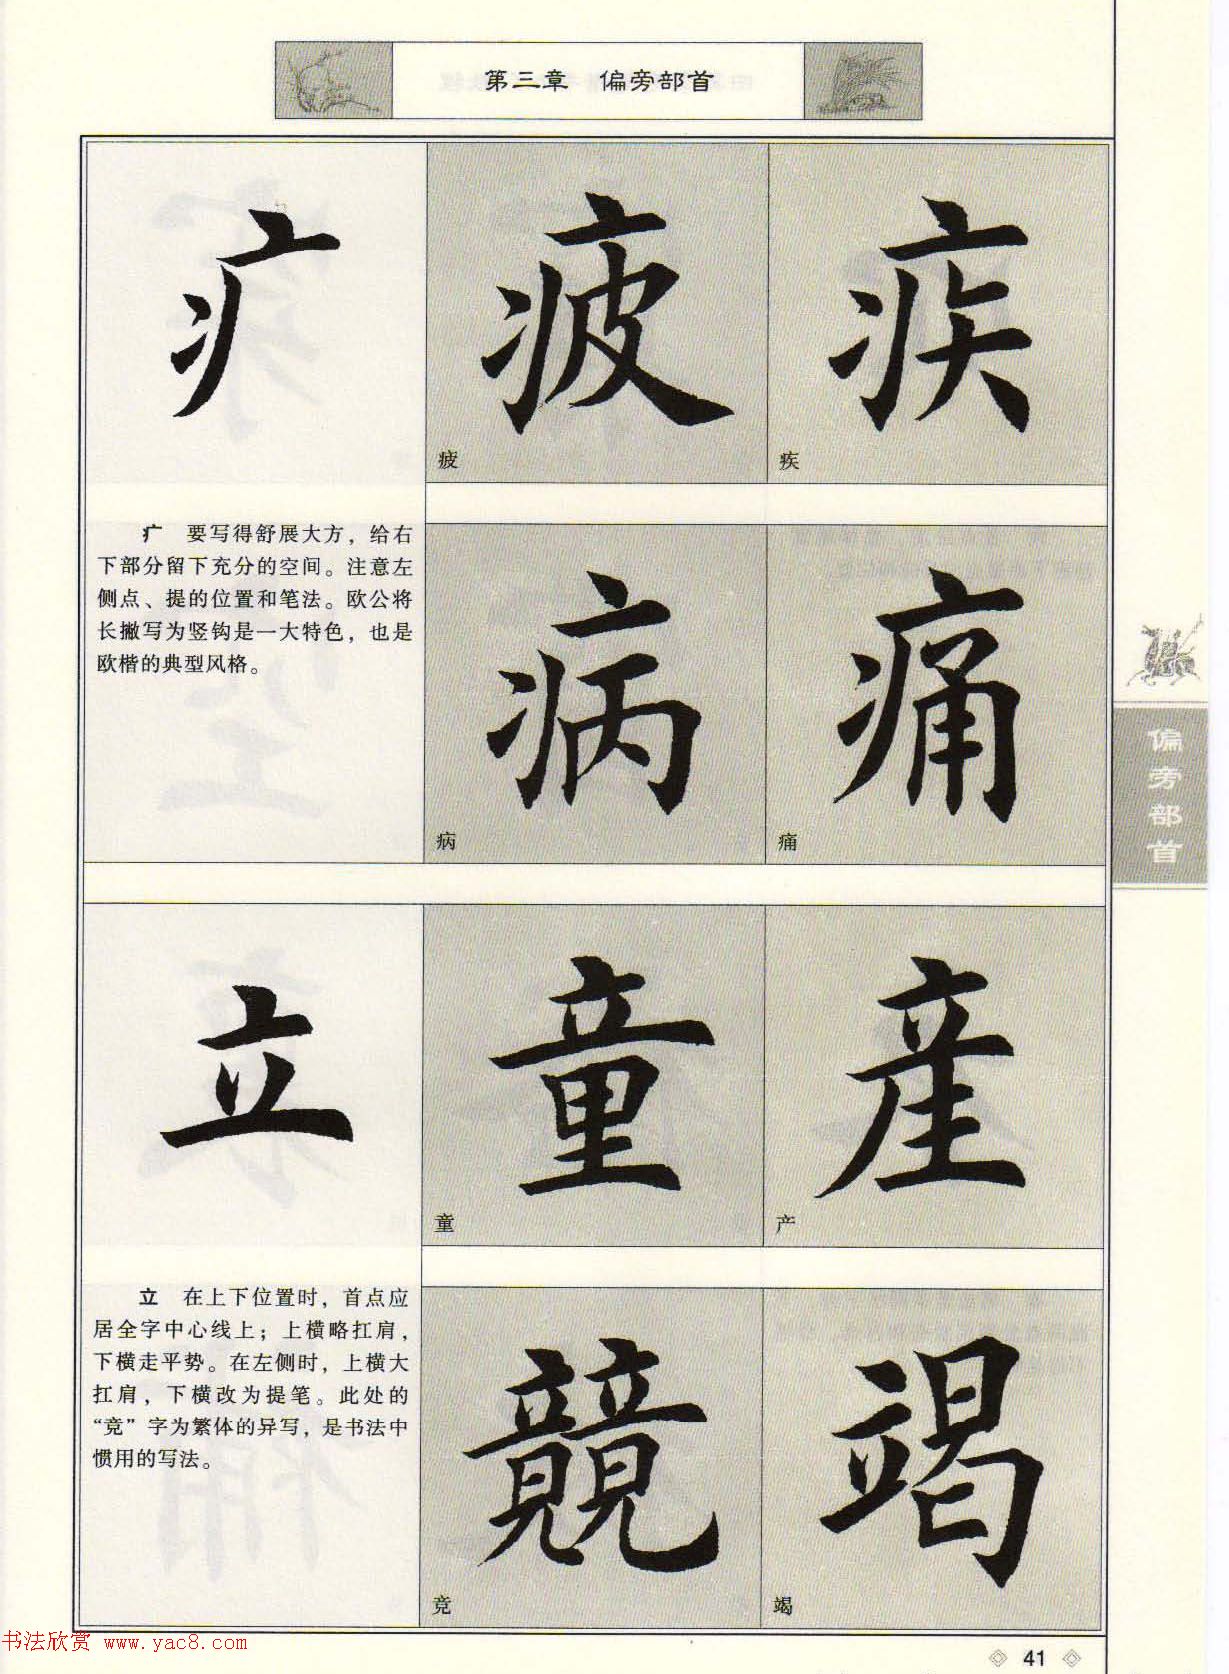 第三章 偏旁部首
疒
疲
疾
疲
疾
疒 要写得舒展大方，给右
下部分留下充分的空间。注意左
侧点、提的位置和笔法。欧公将
长撇写为竖钩是一大特色，也是
欧楷的典型风格。
病
痛
病
痛
偏旁部首
立
童
産
童
产
立 在上下位置时，首点应
居全字中心线上；上横略扛肩，
下横走平势。在左侧时，上横大
扛肩，下横改为提笔。此处的
“竞”字为繁体的异写，是书法中
惯用的写法。
竸
竭
竞
竭
书法欣赏 www.yac8.com
41